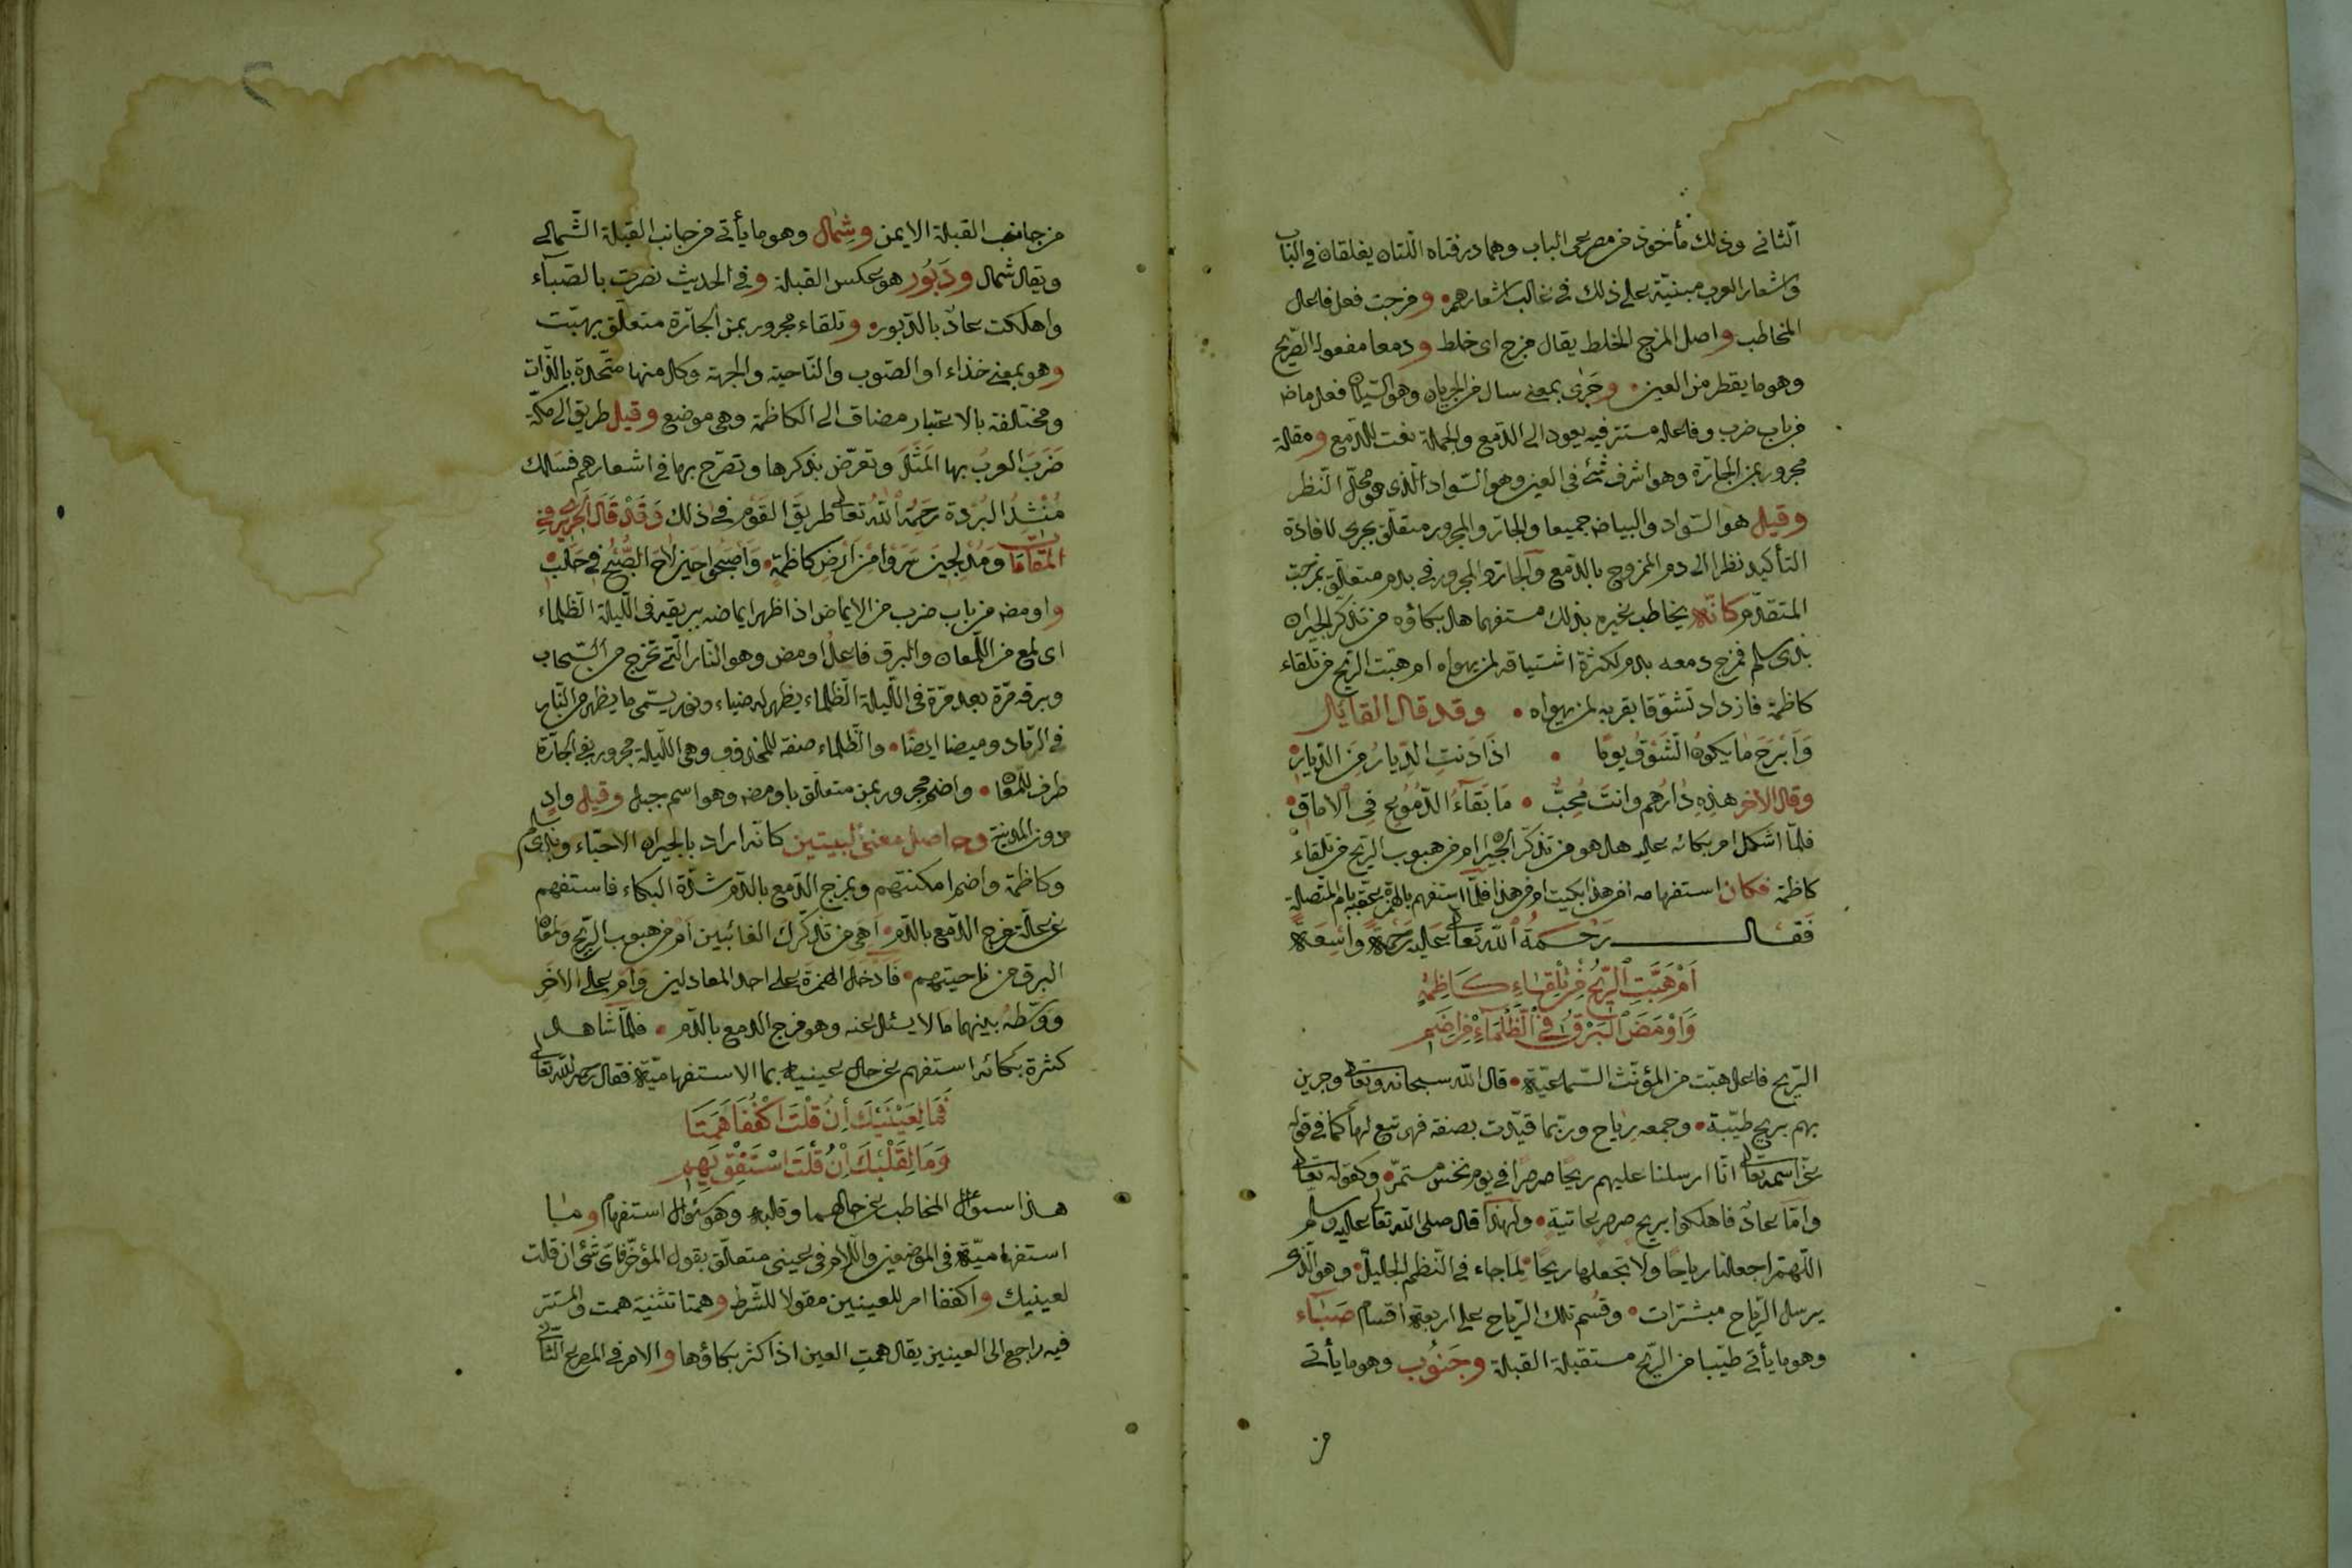 الثاني وذلك مأخوذ من مصرعى الباب وهما درفتاه اللتان يغلقان في الباب
واشعار العرب مبنية على ذلك في غالب اشعارهم ومزجت فعل فاعل
المخاطب واصل المزج الخلط يقال مزج اى خلط ودمعا مفعول الصريح
وهو ما يقطر من العين وجرى بمعنى سال من الجريان وهو السيلان فعل ماض
من باب ضرب وفاعله مستتر فيه يعود الى الدمع والجملة نعت للدمع ومقلة
مجرور بمن الجارة وهو اشرف شئ في العين وهو السواد الذى هو محل النظر
وقيل هو السواد والبياض جميعا والجار والمجرور متعلق بجرى لافادة
التأكيد نظرا الى دم الممزوج بالدمع والجار والمجرور في بدم متعلق بمزجت
المتقدم كانه يخاطب غيره بذلك مستفهما هل بكاؤه من تذكر الجيران
بذى سلم فمزج دمعه بدم لكثرة اشتياقه لمن يهواه ام هبت الريح من تلقاء
كاظمة فازداد تشوقا بقربه لمن يهواه وقد قال القايل
وَاَبْرَحَ مٰا يكونُ الشَوْقُ يومًا اذَا دَنتِ الدِيارُ مِنَ الدّيارِ
وقال الاخر هٰذِهِ دارُهم وانتَ مُحِبٌّ مَا بَقَآءُ الدّمُوعِ فِى الاماقِ
فلمّا اشكل امر بكائه عليه هل هو من تذكر الجيران ام من هبوب الريح من تلقاء
كاظمة فكان استفهامه امن هذا بكيت ام من هذا فلما استفهم بالهمزة عقبه بام المتصلة
فقال رحمة الله تعالى عليه رحمة واسعة
اَمْ هَبَّتِ الرّيحُ مِنْ تِلْقَاءِ كَاظِمَةٍ
وَاَوْمَضَ البَرْقُ فِى الظَّلْمَآءِ مِنْ اِضَمِ
الريح فاعل هبت من المؤنث السماعية قال الله سبحانه وتعالى وجرين
بهم بريح طيبة وجمعه رياح وربما قيدت بصفة فهو تبع لها كما في قوله
عز اسمه تعالى انا ارسلنا عليهم ريحًا صرصرًا في يوم نحس مستمر وكقوله تعالى
وامّا عادٌ فاهلكوا بريح صرصر عاتية ولهذا قال صلى الله تعالى عليه وسلم
اللهم اجعلنا رياحًا ولا تجعلها ريحًا لما جاء في النظم الجليل وهو الذى
يرسل الرياح مبشرات وقسم تلك الرياح على اربعة اقسام صَبَآء
وهو ما يأتى طيبا من الريح مستقبلة القبلة وجَنوُب وهو ما يأتى
من
من جانب القبلة الايمن وشِمٰال وهو ما يأتى من جانب القبلة الشمالى
ويقال شمال ودَبُور هو عكس القبلة وفي الحديث نصرت بالصباء
واهلكت عاد بالدبور وتلقاء مجرور بمن الجارة متعلق بهبّت
وهو بمعنى حذاء او الصوب والناحية والجهة وكل منها متحدة بالذات
ومختلفة بالاعتبار مضاف الى الكاظمة وهى موضع وقيل طريق الى مكة
ضَرَبَ العربُ بها المَثَلَ وتعرض بذكرها وتصرّح بها في اشعارهم فسلك
مُنْشدُ البُرْدة رحمه الله تعالى طريق القَوْم في ذلك وَقَدْ قَالَ الحريرى في
المقامات وَمُدْلجينَ سَرَوْا مِنْ اَرْضِ كاظمةٍ وَاَصْبَحوا حينَ لاحَ الصُّبْحُ فى حَلَبِ
واومض من باب ضرب من الايماض اذا ظهر ايماضه ببريقه في الليلة الظلماء
اى لمع من اللمعان والبرق فاعل اومض وهو النار التى تخرج من السحاب
وبرقه مرّة بعد مرّة في الليلة الظلماء يظهر له ضياء ونور يسمى ما يظهر من النار
في الرماد وميضا ايضًا والظلماء صفة للمحذوف وهى الليلة مجرور بفى الجارة
ظرف للمعان واضم مجرور بمن متعلق باومض وهو اسم جبل وقيل وادٍ
دون المدينة وحاصل معنى البيتين كانه اراد بالجيران الاحباء وبذى سلم
وكاظمة واضم امكنتهم وبمزج الدمع بالدم شدّة البكاء فاستفهم
عن علة مزج الدمع بالدم اَهى من تذكرك الغائبين اَم من هبوب الريح ولمعان
البرق من ناحيتهم فَاَدْخَلَ الهمزةَ على احد المعادلين وَاَمْ على الاخر
ووَسَّطهُ بينهما ما لا يسئل عنه وهو مزج الدمع بالدم فلمّا شاهد
كثرة بكائه استفهم عن حال عينيه بما الاستفهامية فقال رحمه الله تعالى
فَمَا لِعَيْنَيْكَ اِنْ قُلْتَ اكْفُفَا هَمَتَا
وَمَا لِقَلْبِكَ اِنْ قُلْتَ اسْتَفِقْ يَهِمِ
هذا سؤال المخاطب عن حالهما وقلبه وهو سؤال استفهام ومٰا
استفهامية في الموضعين واللام في عينى متعلق بقول المؤخر فاىّ شئ ان قلت
لعينيك واكففا امر للعينين مقولا للشرط وهمتا تثنية همت والمستتر
فيه راجع الى العينين يقال همت العين اذا كثر بكاؤها والامر في المصرع الثانى